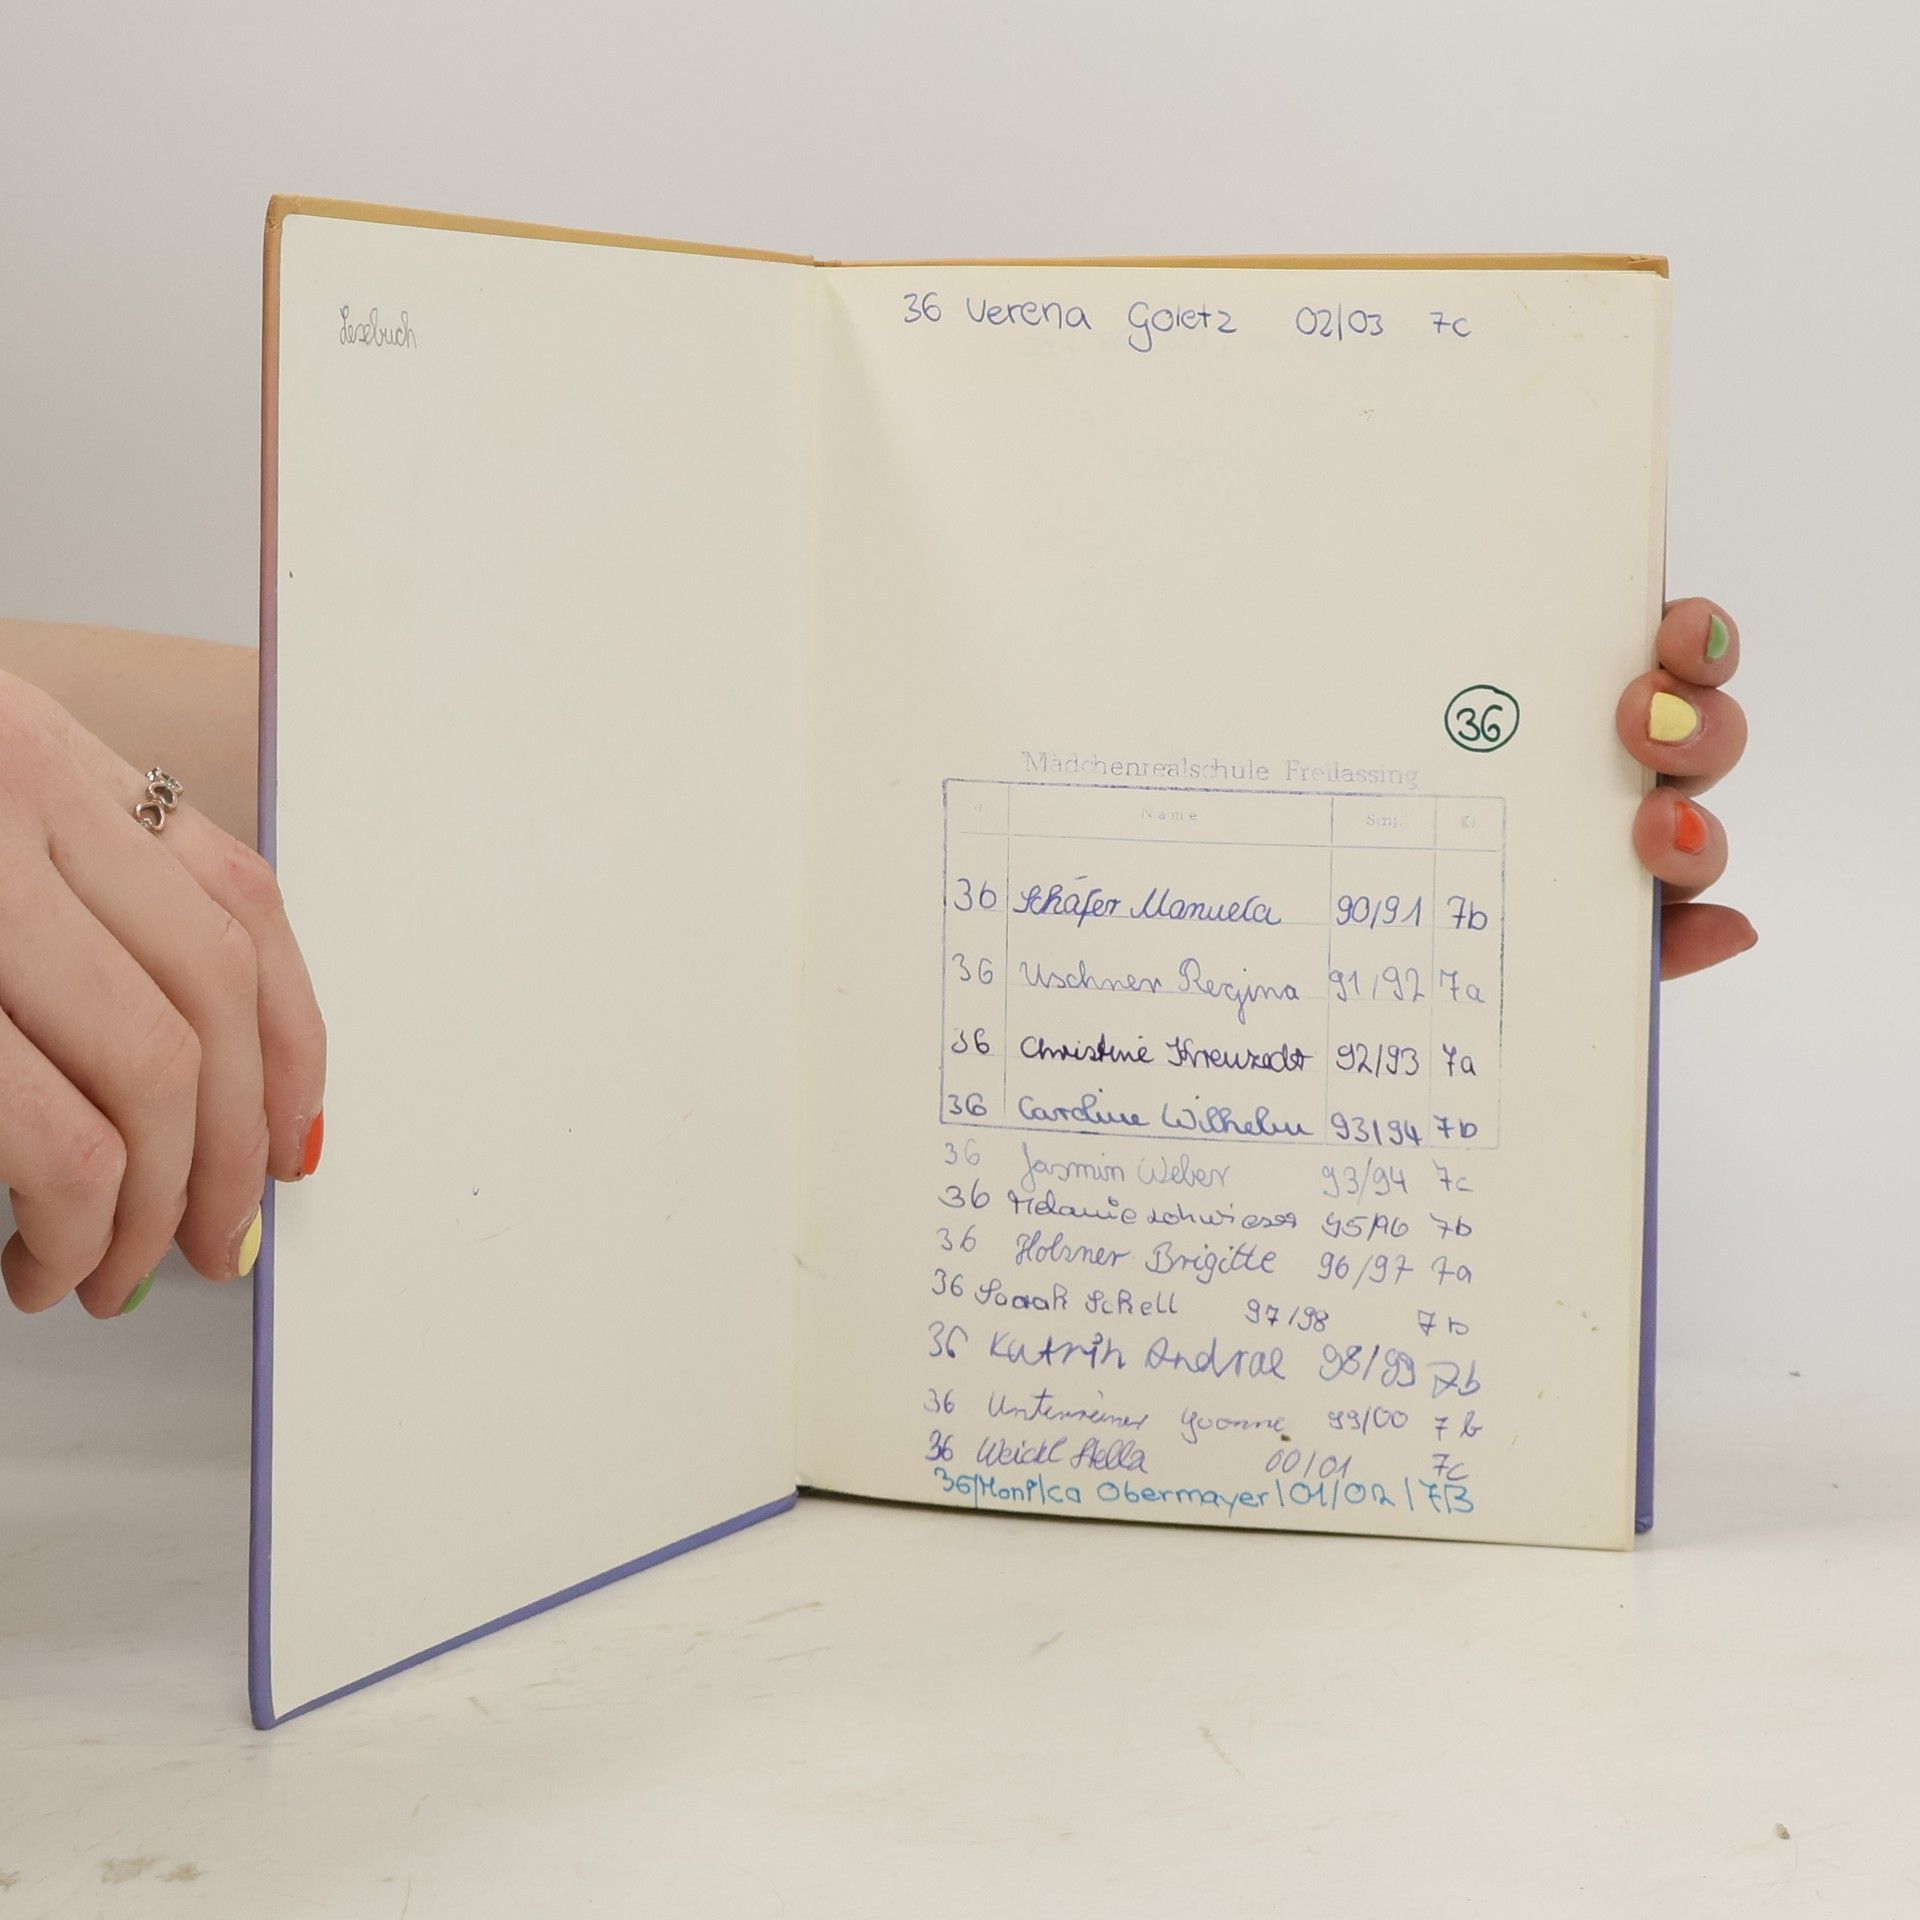 Lesebuch
36 Verena Goletz 02/03 7c
36
Mädchenrealschule Freilassing
Name Schj. Kl.
36 Schäfer Manuela 90/91 7b
36 Uschner Regina 91/92 7a
36 Christine 92/93 7a
36 Caroline Wilhelm 93/94 7b
36 Jasmin Weber 93/94 7c
36 Melanie 95/96 7b
36 Holzner Brigitte 96/97 7a
36 Sarah Schell 97/98 7b
36 Katrin Andrae 98/99 7b
36 Unterreiner Yvonne 99/00 7b
36 Weickl Stella 00/01 7c
36/Monika Obermayer/01/02/7B